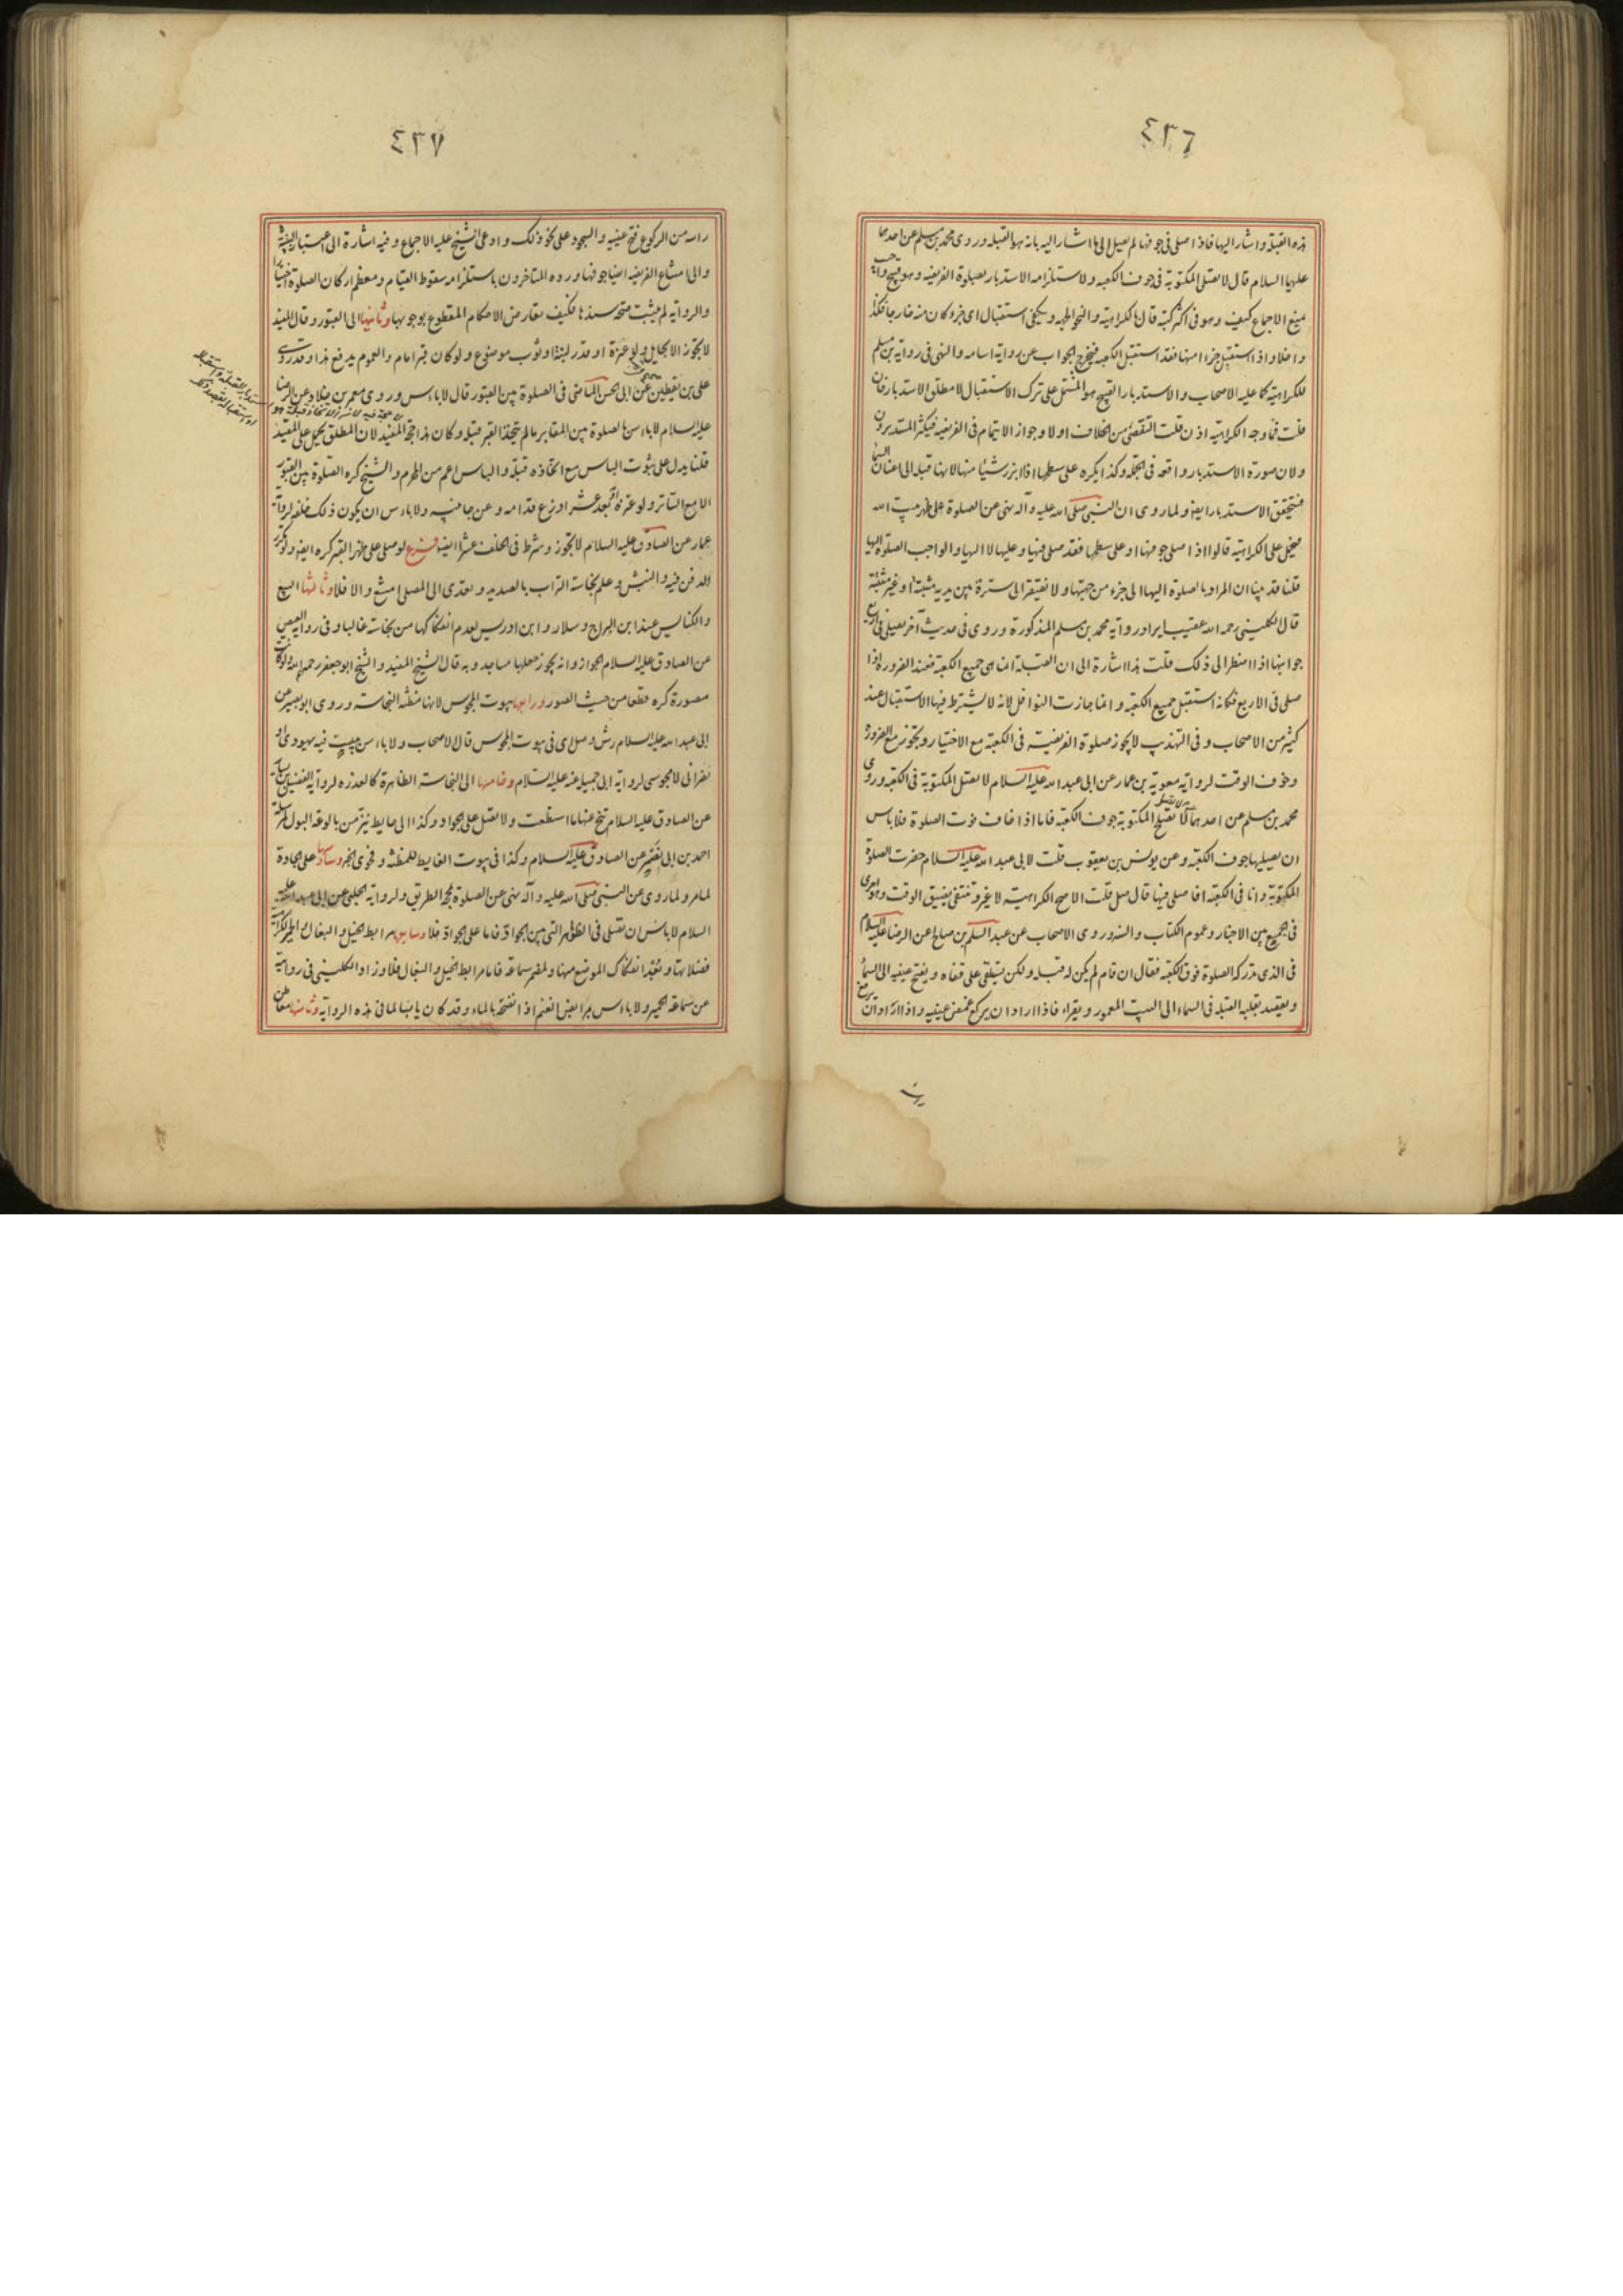 ٤٣٦
هذه القبلة واشار اليها فاذا صلى فى جوفها لم يصل الى ما اشار اليه بانه هو القبلة وروى محمد بن مسلم عن احدهما
عليهما السلام قال لا تصل المكتوبة فى جوف الكعبة ولاستلزامه الاستدبار بصلوة الفريضة وهو قبيح واجيب
بمنع الاجماع كيف وهو فى اكثر كتبه قال بالكراهية والنحو الجهة ويكفى استقبال اى جزء كان منه خارجا فكذا
داخلا واذا استقبل جزءا منها فقد استقبل الكعبة فيخرج الجواب عن رواية اسامة والنهى فى رواية بن مسلم
للكراهية كما عليه الاصحاب والاستدبار القبيح هو المشتمل على ترك الاستقبال لا مطلق الاستدبار فان
قلت فما وجه الكراهية اذن قلت التفصى من الخلاف اولا وجواز الايتمام فى الفريضة فيكثر المستدبرون
ولان صورة الاستدبار واقعة فى الجملة وكذا يكره على سطحها اذا ابرز شيئا منها لانها قبلة الى اعنان السماء
فيتحقق الاستدبار ايضا ولما روى ان النبى صلى الله عليه وآله نهى عن الصلوة على ظهر بيت الله
فيحمل على الكراهية قالوا اذا صلى جوفها او على سطحها فقد صلى فيها وعليها لا اليها والواجب الصلوة اليها
قلنا قد بينا ان المراد بالصلوة اليها الى جزء من جهتها ولا تفتقر الى سترة بين يديه مثبتة او غير مثبتة
قال الكلينى رحمه الله عقيب ايراد رواية محمد بن مسلم المذكورة وروى فى حديث آخر يصلى فى اربع
جوانبها اذا اضطر الى ذلك قلت هذا اشارة الى ان القبلة انما هى جميع الكعبة فعند الضرورة اذا
صلى فى الاربع فكانه استقبل جميع الكعبة وانما جازت النوافل لانه لا يشترط فيها الاستقبال عند
كثير من الاصحاب وفى التهذيب لا يجوز صلوة الفريضة فى الكعبة مع الاختيار ويجوز مع الضرورة
وخوف الوقت لرواية معوية بن عمار عن ابى عبد الله عليه السلام لا تصل المكتوبة فى الكعبة وروى
محمد بن مسلم عن احدهما لا تصلح المكتوبة جوف الكعبة فاما اذا خاف فوت الصلوة فلا باس
ان يصليها جوف الكعبة وعن يونس بن يعقوب قلت لابى عبد الله عليه السلام حضرت الصلوة
المكتوبة وانا فى الكعبة افاصلى فيها قال صل قلت الاصح الكراهية لا غير وتنتفى بضيق الوقت وهو احرى
فى الجميع بين الاخبار وعموم الكتاب والسنة وروى الاصحاب عن عبد السلم بن صالح عن الرضا عليه السلام
فى الذى تدركه الصلوة فوق الكعبة فقال ان قام لم يكن له قبلة ولكن يستلقى على قفاه ويفتح عينيه الى السماء
ويقصد بقلبه القبلة فى السماء الى البيت المعمور ويقراء فاذا اراد ان يركع غمض عينيه واذا اراد ان يرفع
٤٣٧
راسه من الركوع فتح عينيه والسجود على نحو ذلك وادعى الشيخ عليه الاجماع وفيه اشارة الى اعتبار البنية
والى امتناع الفريضة ايضا جوفها ورده المتاخرون باستلزامه سقوط القيام ومعظم اركان الصلوة اختيارا
والرواية لم يثبت صحة سندها فكيف تعارض الاحكام المقطوع بوجوبها وثانيها الى القبور وقال المفيد
لا يجوز الا بحايل ولو عنزة او قدر لبنة او ثوب موضوع ولو كان قبر امام والعموم يدفع هذا وقد روى
على بن يقطين عن ابى الحسن الماضى فى الصلوة بين القبور قال لا باس وروى معمر بن خلاد عن الرضا
عليه السلام لا باس بالصلوة بين المقابر ما لم يتخذ القبر قبلة وكان هذا حجة المفيد لان المطلق يحمل على المقيد
قلنا يدل على ثبوت الباس مع اتخاذه قبلة والباس اعم من الحرم والشيخ كره الصلوة بين القبور
الا مع الساتر ولو عنزة او بعد عشر اذرع قدامه وعن جانبيه ولا باس ان يكون ذلك خلفه لرواية
عمار عن الصادق عليه السلام لا تجوز وشرط فى الخلف عشرا ايضا فرع لو صلى على ظهر القبر كره ايضا ولو تكرر
الدفن فيه والنبش وعلم نجاسة التراب بالصديد وتعدى الى المصلى امتنع والا فلا وثالثها البيع
والكنائس عند ابن البراج وسلار وابن ادريس لعدم انفكاكها من نجاسة غالبا وفى رواية العيص
عن الصادق عليه السلام الجواز وانه يجوز جعلها مساجد وبه قال الشيخ المفيد والشيخ ابو جعفر رحمهم الله ولو كانت
مصورة كره قطعا من حيث الصور ورابعها بيوت المجوس لانها مظنة النجاسة وروى ابو بصير عن
ابى عبد الله عليه السلام رش وصل اى فى بيوت المجوس قال الاصحاب ولا باس ببيت فيه يهودى او
نصرانى لا مجوسى لرواية ابى جميلة عنه عليه السلام وخامسها الى النجاسة الظاهرة كالعذرة لرواية الفضيل بن يسار
عن الصادق عليه السلام تنح عنها ما استطعت ولا تصل على الجواد وكذا الى حايط ينز من بالوعة البول لمرسلة
احمد بن ابى نصر عن الصادق عليه السلام وكذا فى بيوت الغايط للمظنة وفحوى الخبر وسادسها على الجادة
لما مر ولما روى عن النبى صلى الله عليه وآله نهى عن الصلوة محجة الطريق ولرواية الحلبى عن ابى عبد الله عليه
السلام لا باس ان تصلى فى الظواهر التى بين الجواد فاما على الجواد فلا وسابعها مرابط الخيل والبغال والحمير لكراهية
فضلاتها وتعبد انفكاك الموضع منها ولمضمر سماعة فاما مرابط الخيل والبغال فلا وزاد الكلينى فى رواية
عن سماعة الحمير ولا باس بمرابض الغنم اذا نضحه بالماء وقد كان يابسا لما فى هذه الرواية وثامنها معاطن